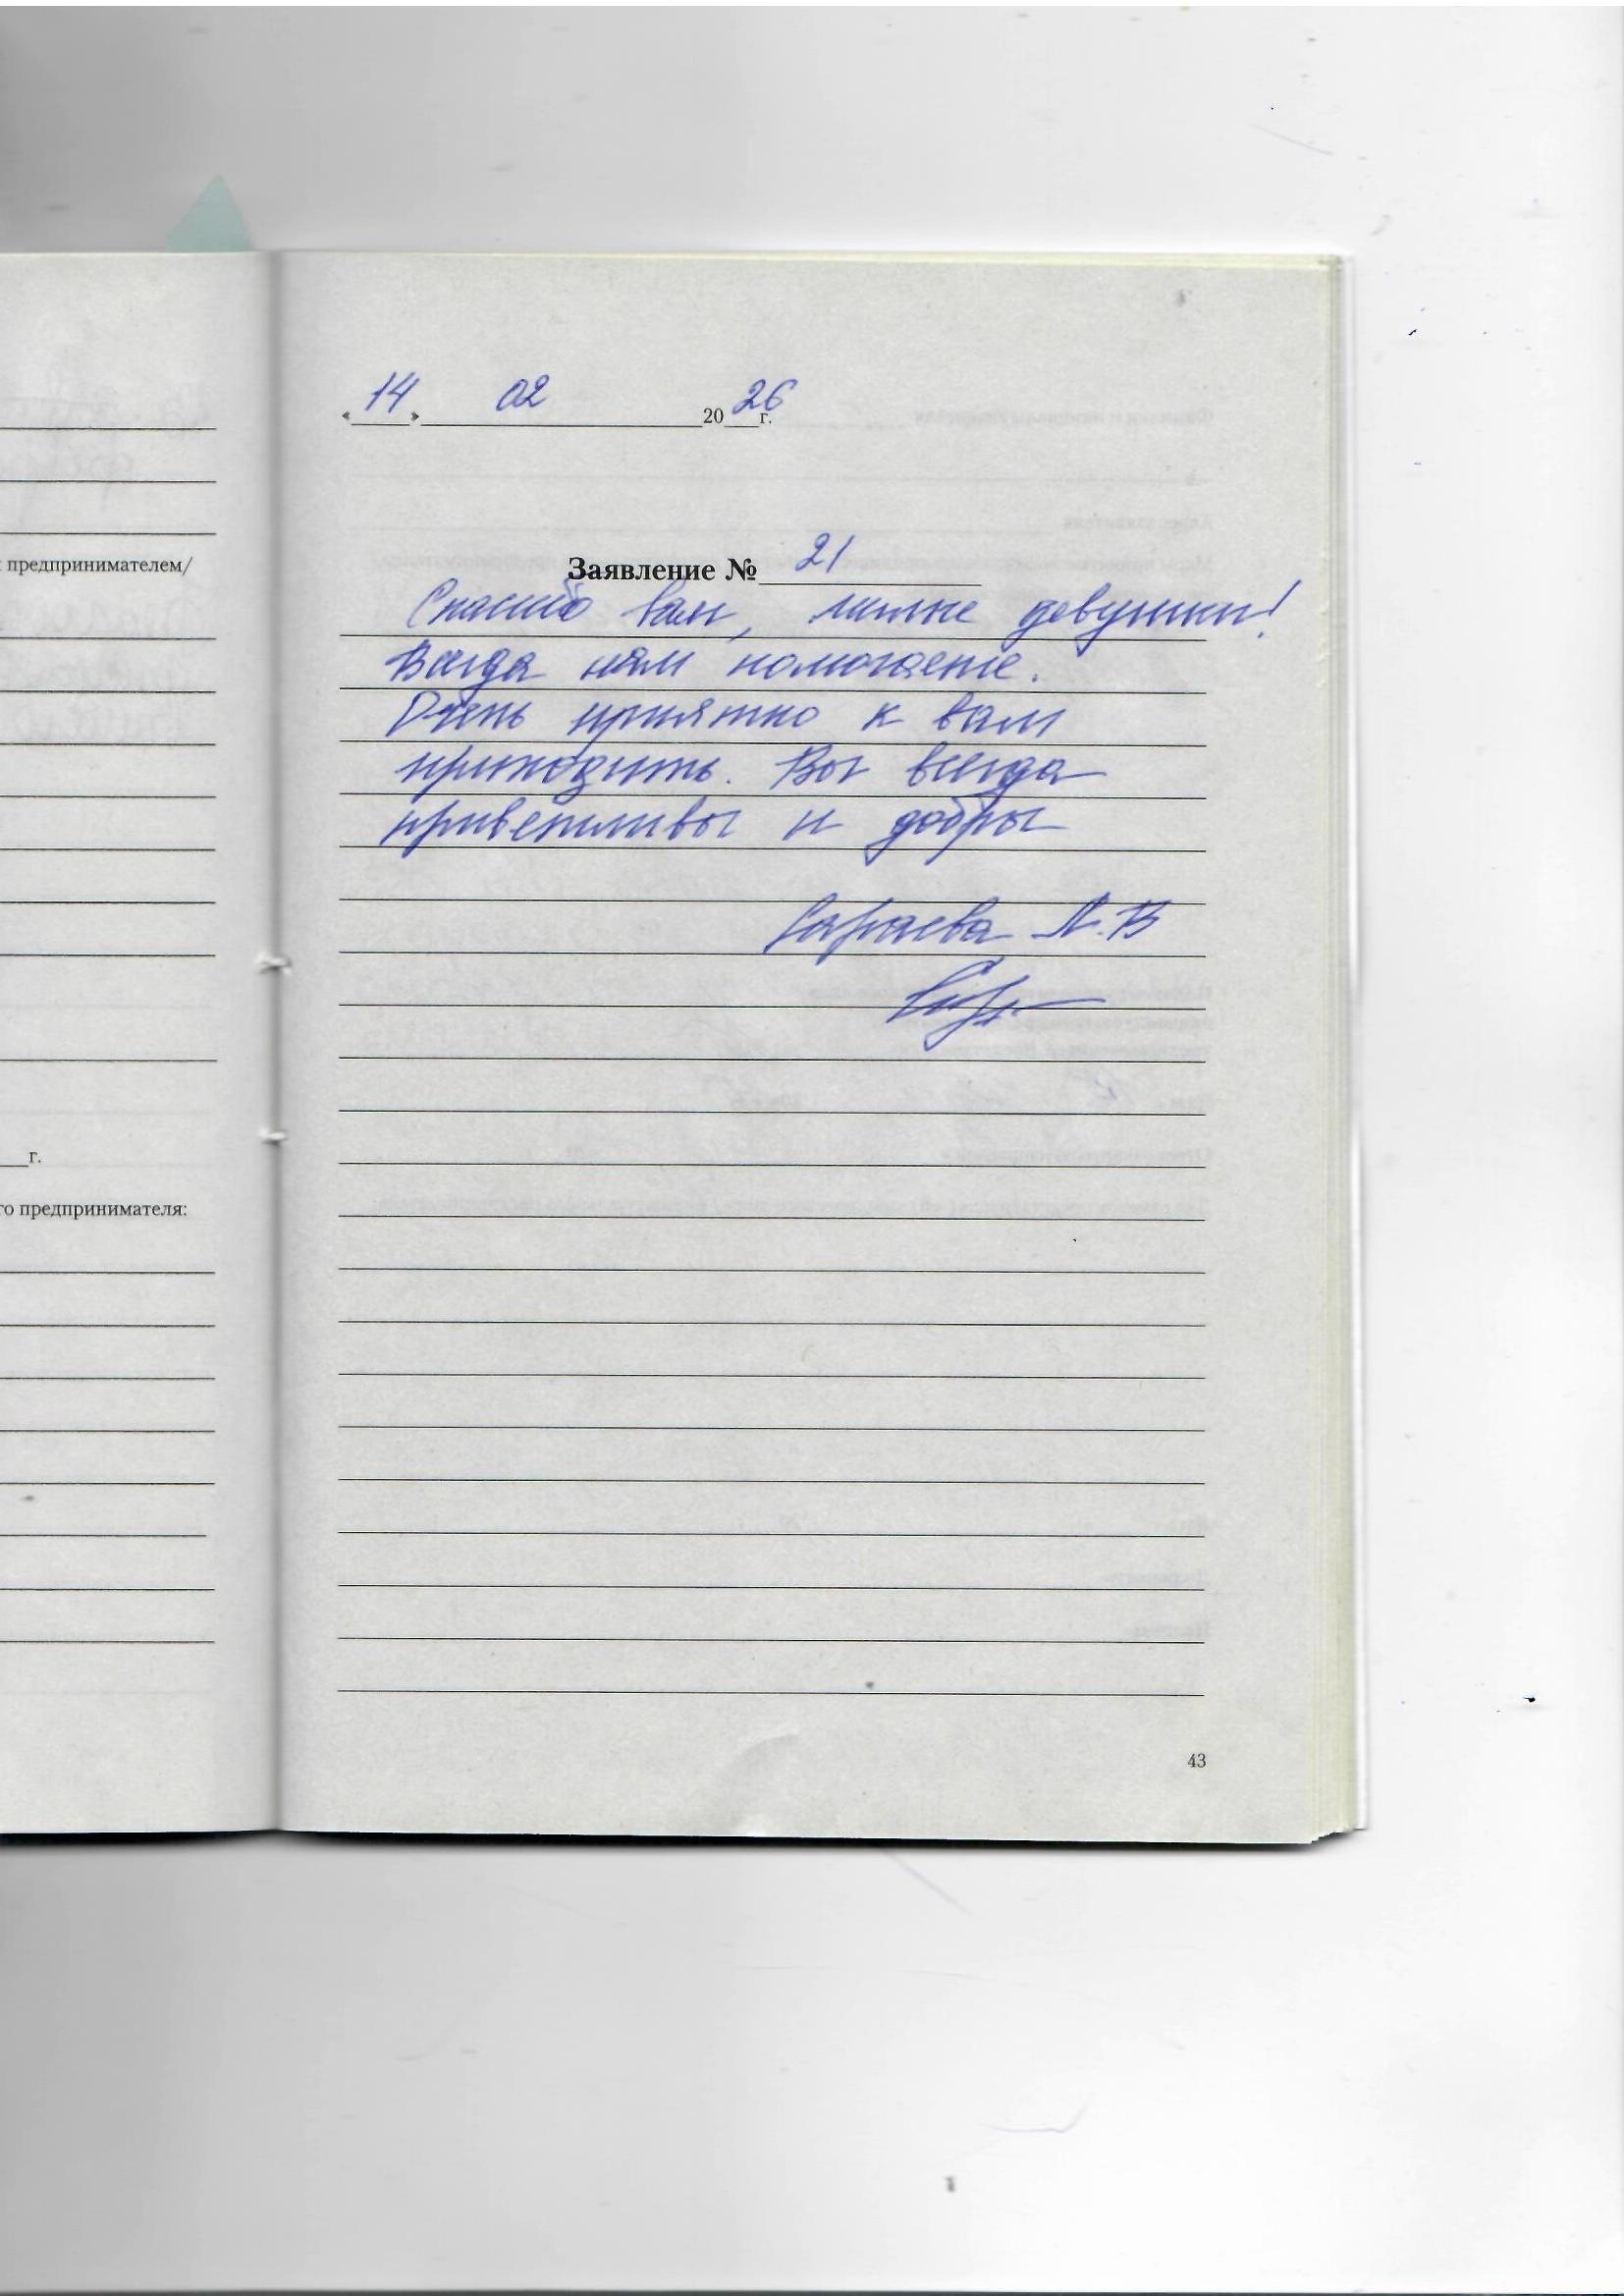 «14» 02 2026 г.
предпринимателем/
Заявление № 21
Спасибо вам, милые девушки!
Всегда нам помогаете.
Очень приятно к вам
приходить. Вы всегда
приветливы и добры
Сараева Л.В
г.
го предпринимателя:
43